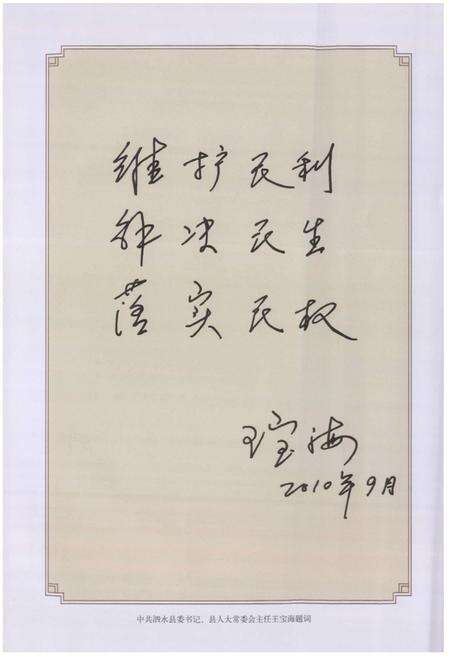 维护民利
解决民生
落实民权
王宝海
2010年9月
中共泗水县委书记、县人大常委会主任王宝海题词